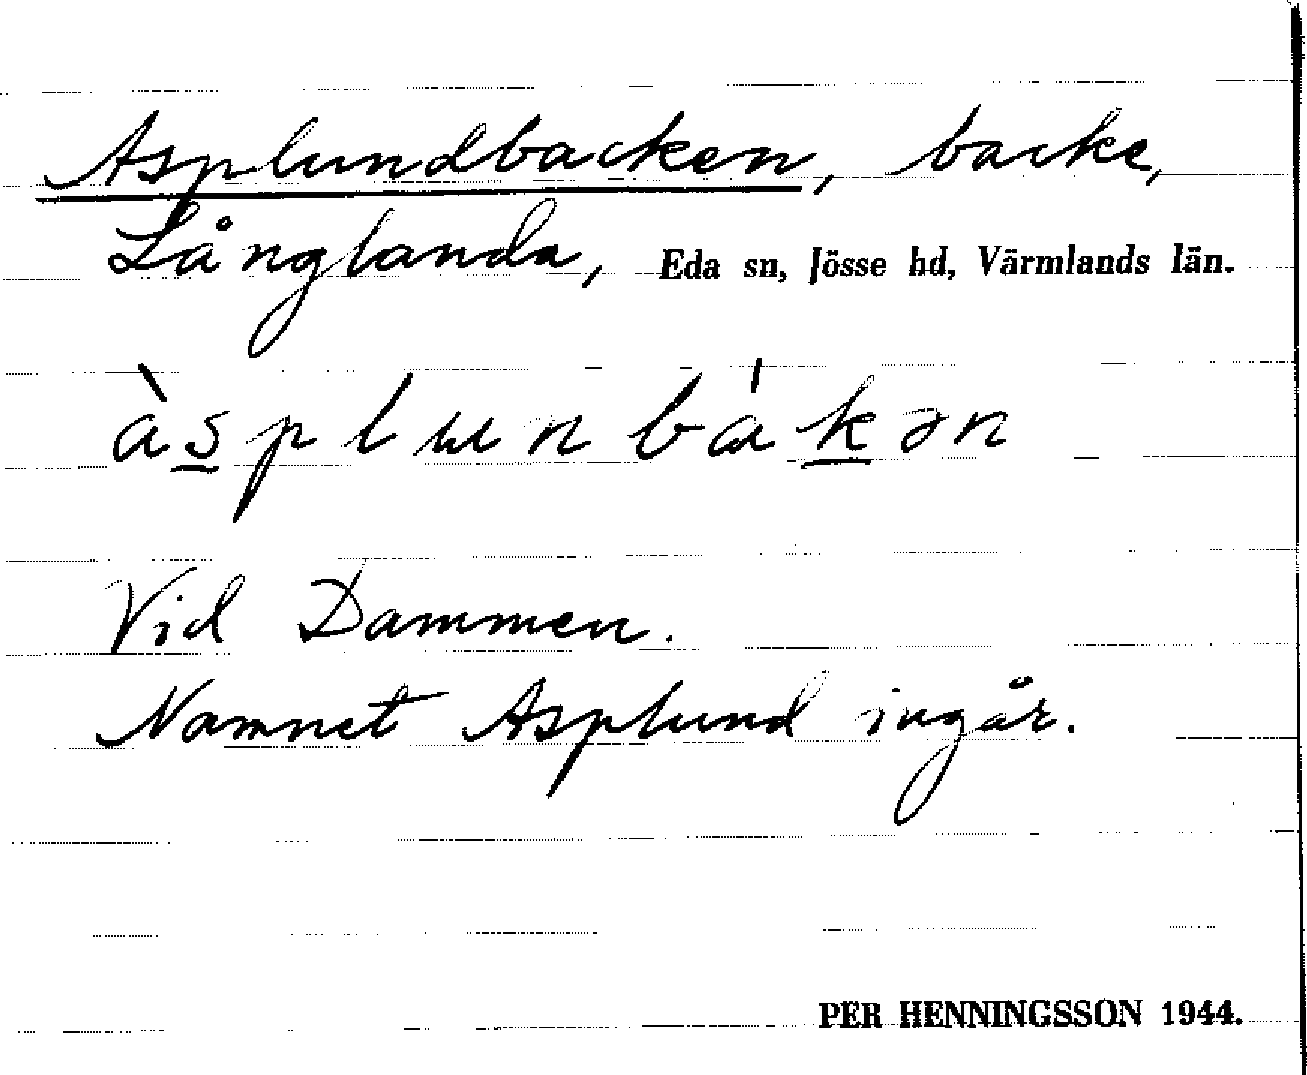 Asplundbacken, backe,
Långlanda, Eda sn, Jösse hd, Värmlands län.
àsplɯnbákən
Vid Dammen.
Namnet Asplund ingår.
PER HENNINGSSON 1944.